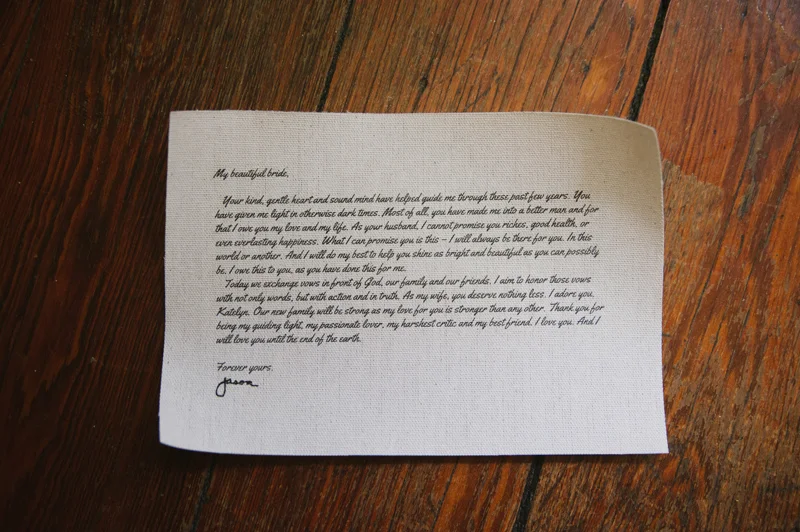 My beautiful bride,
Your kind, gentle heart and sound mind have helped guide me through these past few years. You
have given me light in otherwise dark times. Most of all, you have made me into a better man and for
that I owe you my love and my life. As your husband, I cannot promise you riches, good health, or
even everlasting happiness. What I can promise you is this – I will always be there for you. In this
world or another. And I will do my best to help you shine as bright and beautiful as you can possibly
be. I owe this to you, as you have done this for me.
Today we exchange vows in front of God, our family and our friends. I aim to honor those vows
with not only words, but with action and in truth. As my wife, you deserve nothing less. I adore you,
Katelyn. Our new family will be strong as my love for you is stronger than any other. Thank you for
being my guiding light, my passionate lover, my harshest critic and my best friend. I love you. And I
will love you until the end of the earth.
Forever yours,
Jason